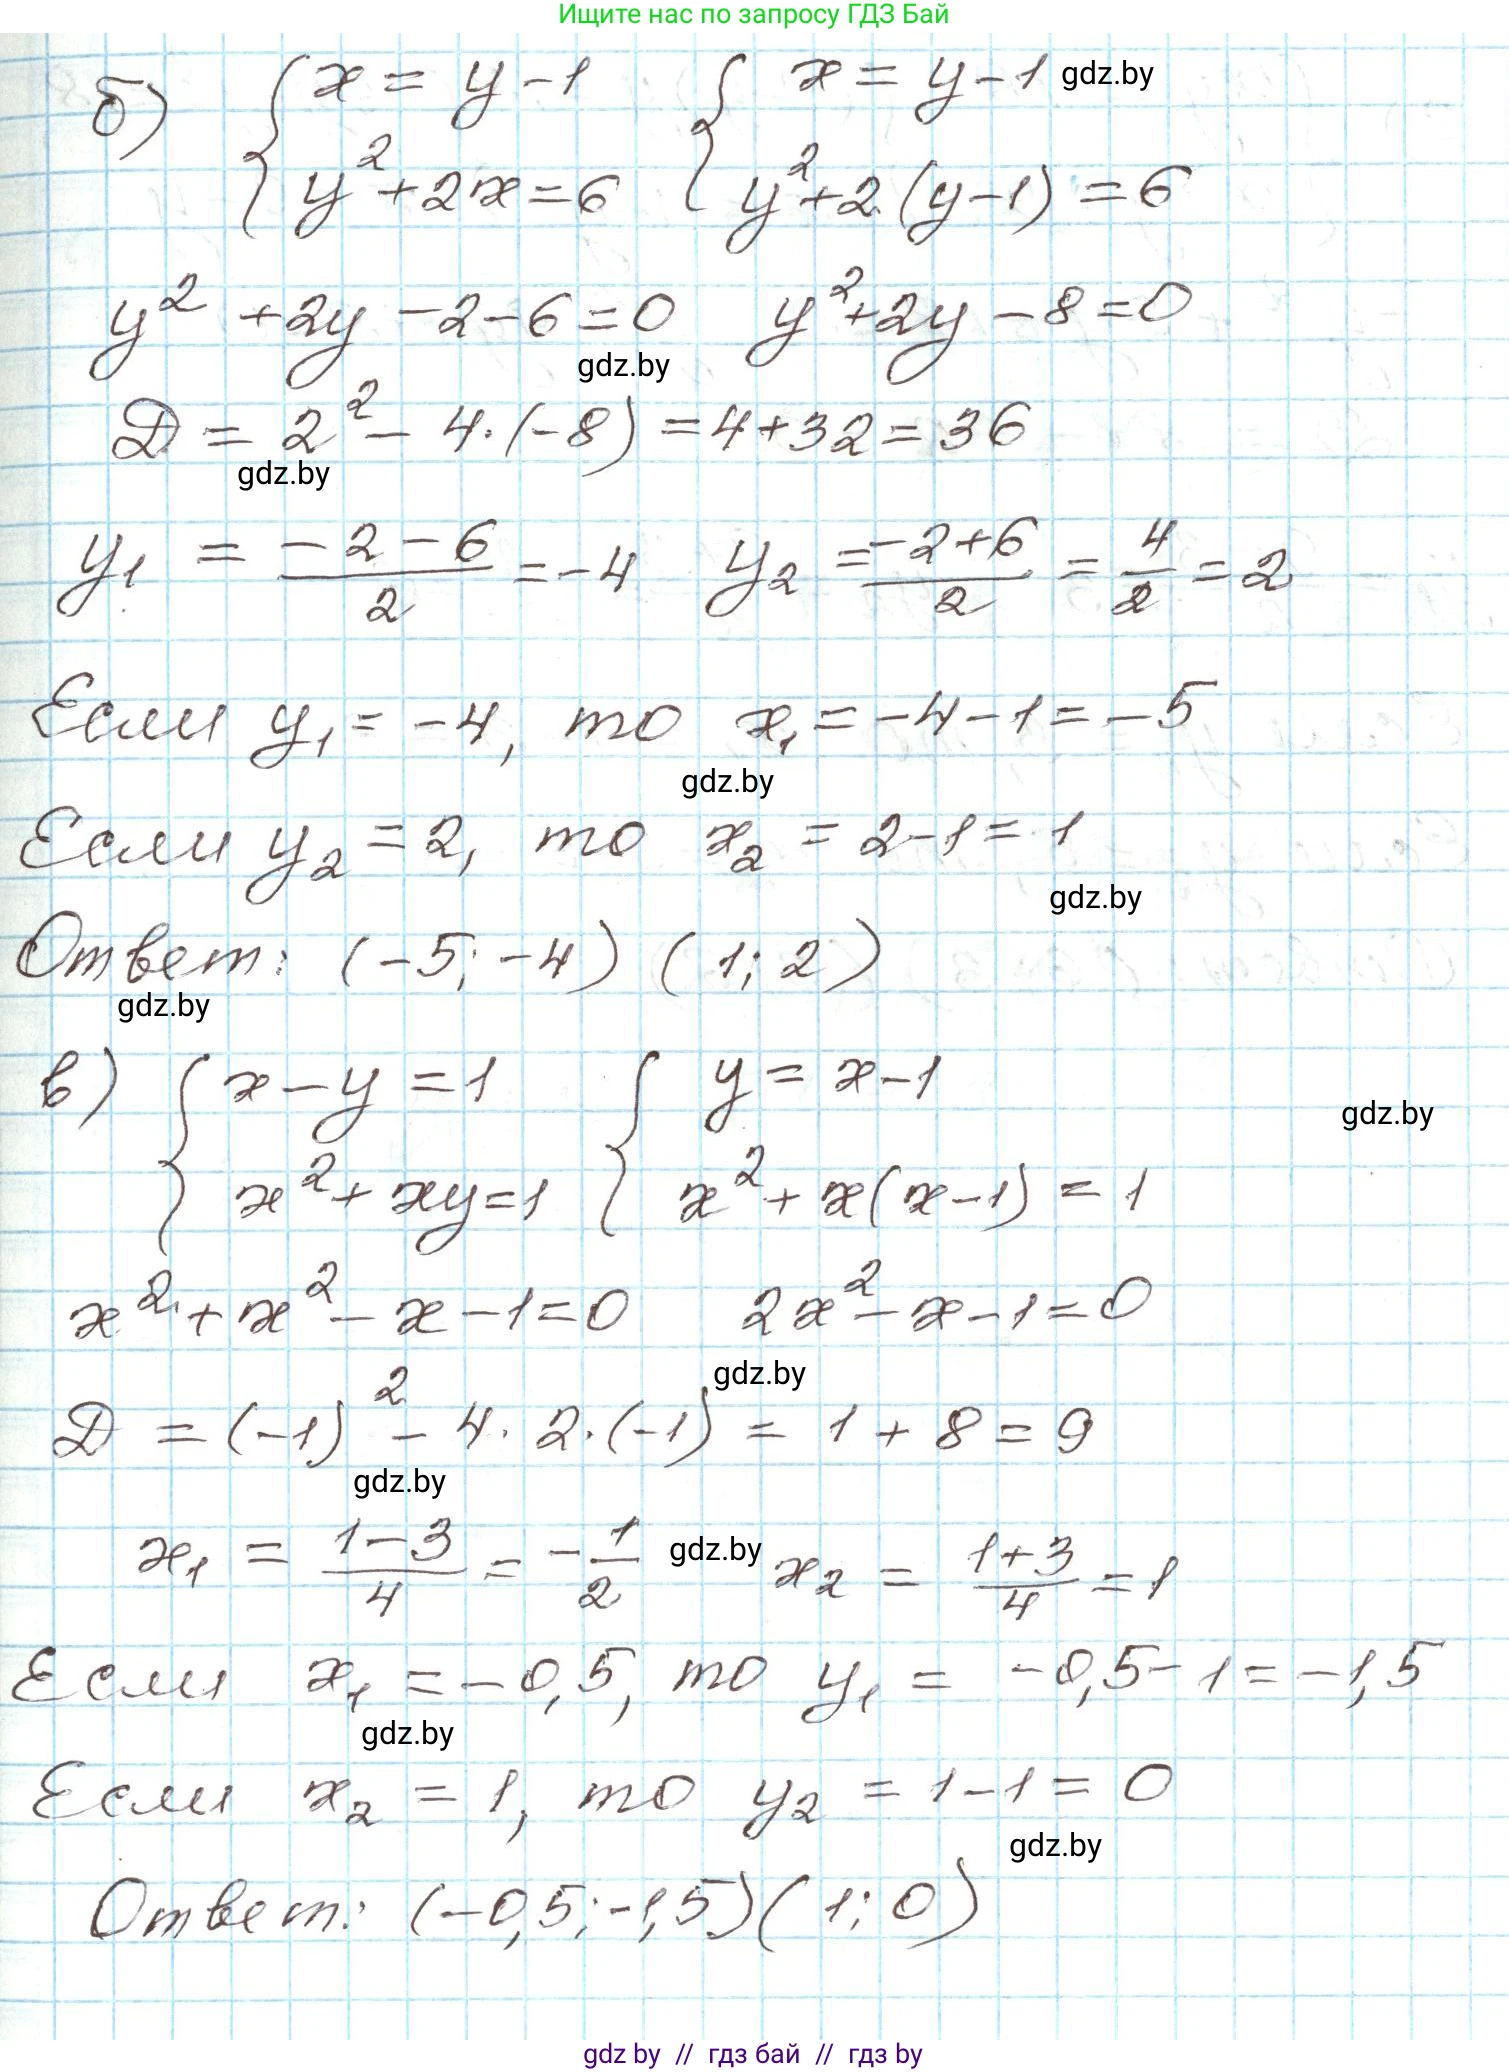 Ищите нас по запросу ГДЗ Бай
б) { x = y - 1   { x = y - 1 gdz.by
y² + 2x = 6   y² + 2(y - 1) = 6
y² + 2y - 2 - 6 = 0   y² + 2y - 8 = 0
gdz.by
D = 2² - 4·(-8) = 4 + 32 = 36
gdz.by
y₁ = (-2 - 6)/2 = -4   y₂ = (-2 + 6)/2 = 4/2 = 2
Если y₁ = -4, то x₁ = -4 - 1 = -5
gdz.by
Если y₂ = 2, то x₂ = 2 - 1 = 1
gdz.by
Ответ: (-5; -4) (1; 2)
gdz.by
в) { x - y = 1   { y = x - 1
gdz.by
x² + xy = 1   x² + x(x - 1) = 1
x² + x² - x - 1 = 0   2x² - x - 1 = 0
gdz.by
D = (-1)² - 4·2·(-1) = 1 + 8 = 9
gdz.by
x₁ = (1 - 3)/4 = -1/2 gdz.by x₂ = (1 + 3)/4 = 1
Если x₁ = -0,5, то y₁ = -0,5 - 1 = -1,5
gdz.by
Если x₂ = 1, то y₂ = 1 - 1 = 0
gdz.by
Ответ: (-0,5; -1,5) (1; 0)
gdz by // гдз бай // гдз by